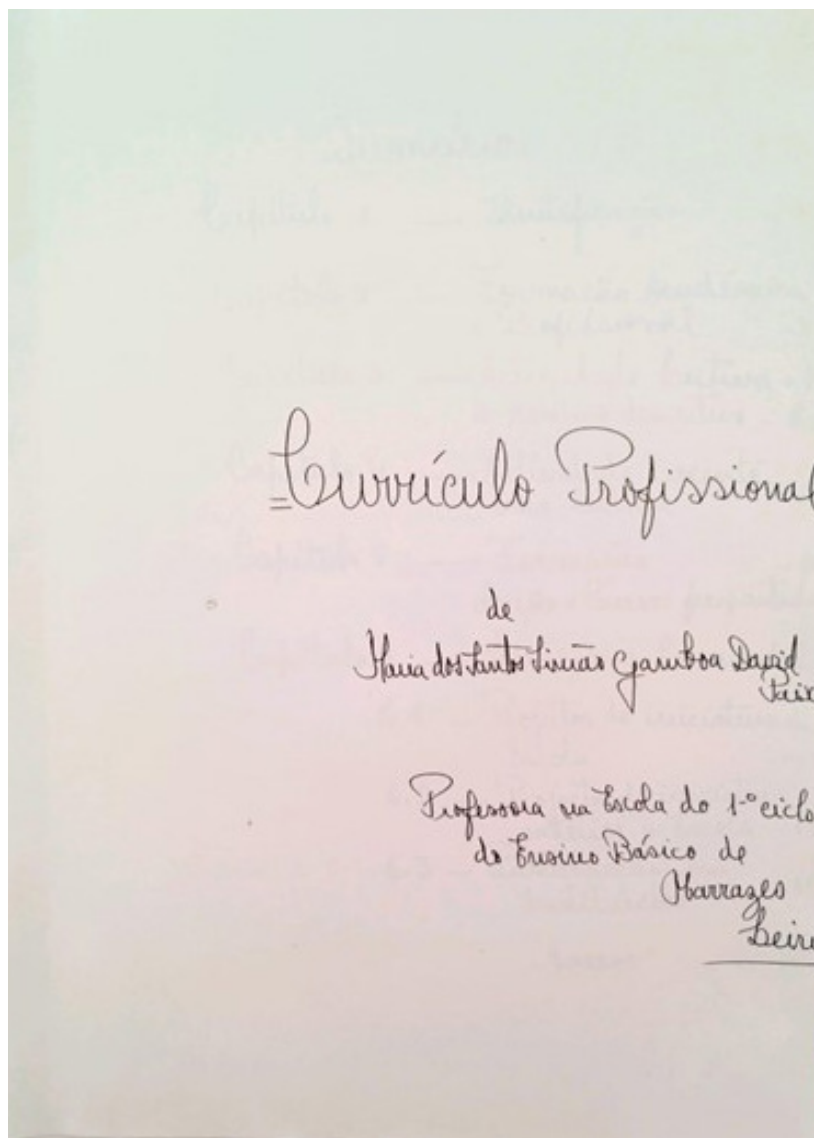 Currículo Profissional
de
Maria dos Santos Simão Gamboa David
Paix
Professora na Escola do 1.º ciclo
do Ensino Básico de
Marrazes
Leiri